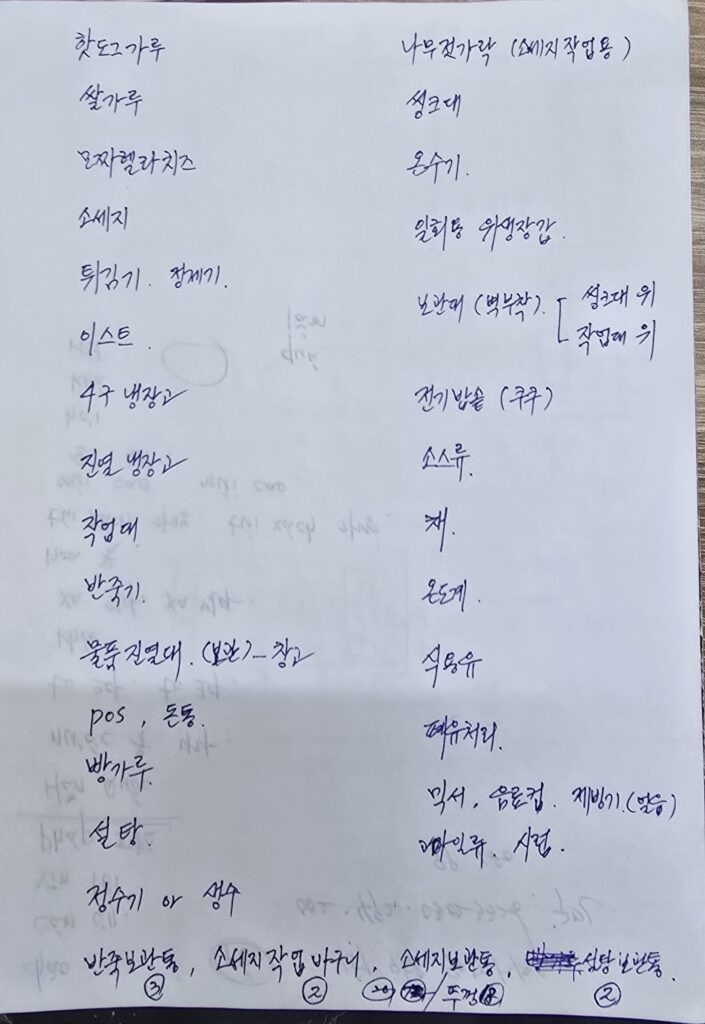 핫도그가루
쌀가루
모짜렐라치즈
소세지
튀김기. 정제기.
이스트.
4구 냉장고
진열 냉장고
작업대.
반죽기.
물품진열대. (보관)-창고
pos, 돈통.
빵가루.
설탕.
정수기 아 생수
나무젓가락 (소세지작업용)
씽크대
온수기.
일회용 위생장갑.
보관대 (벽부착). 씽크대 위
작업대 위
전기밥솥 (쿠쿠)
소스류.
채.
온도계.
식용유
폐유처리.
믹서, 음료컵. 제빙기.(얼음)
과일류, 시럽.
반죽보관통, 소세지작업바구니, 소세지보관통, 설탕보관통.
③ ② 20 / 뚜껑 ②